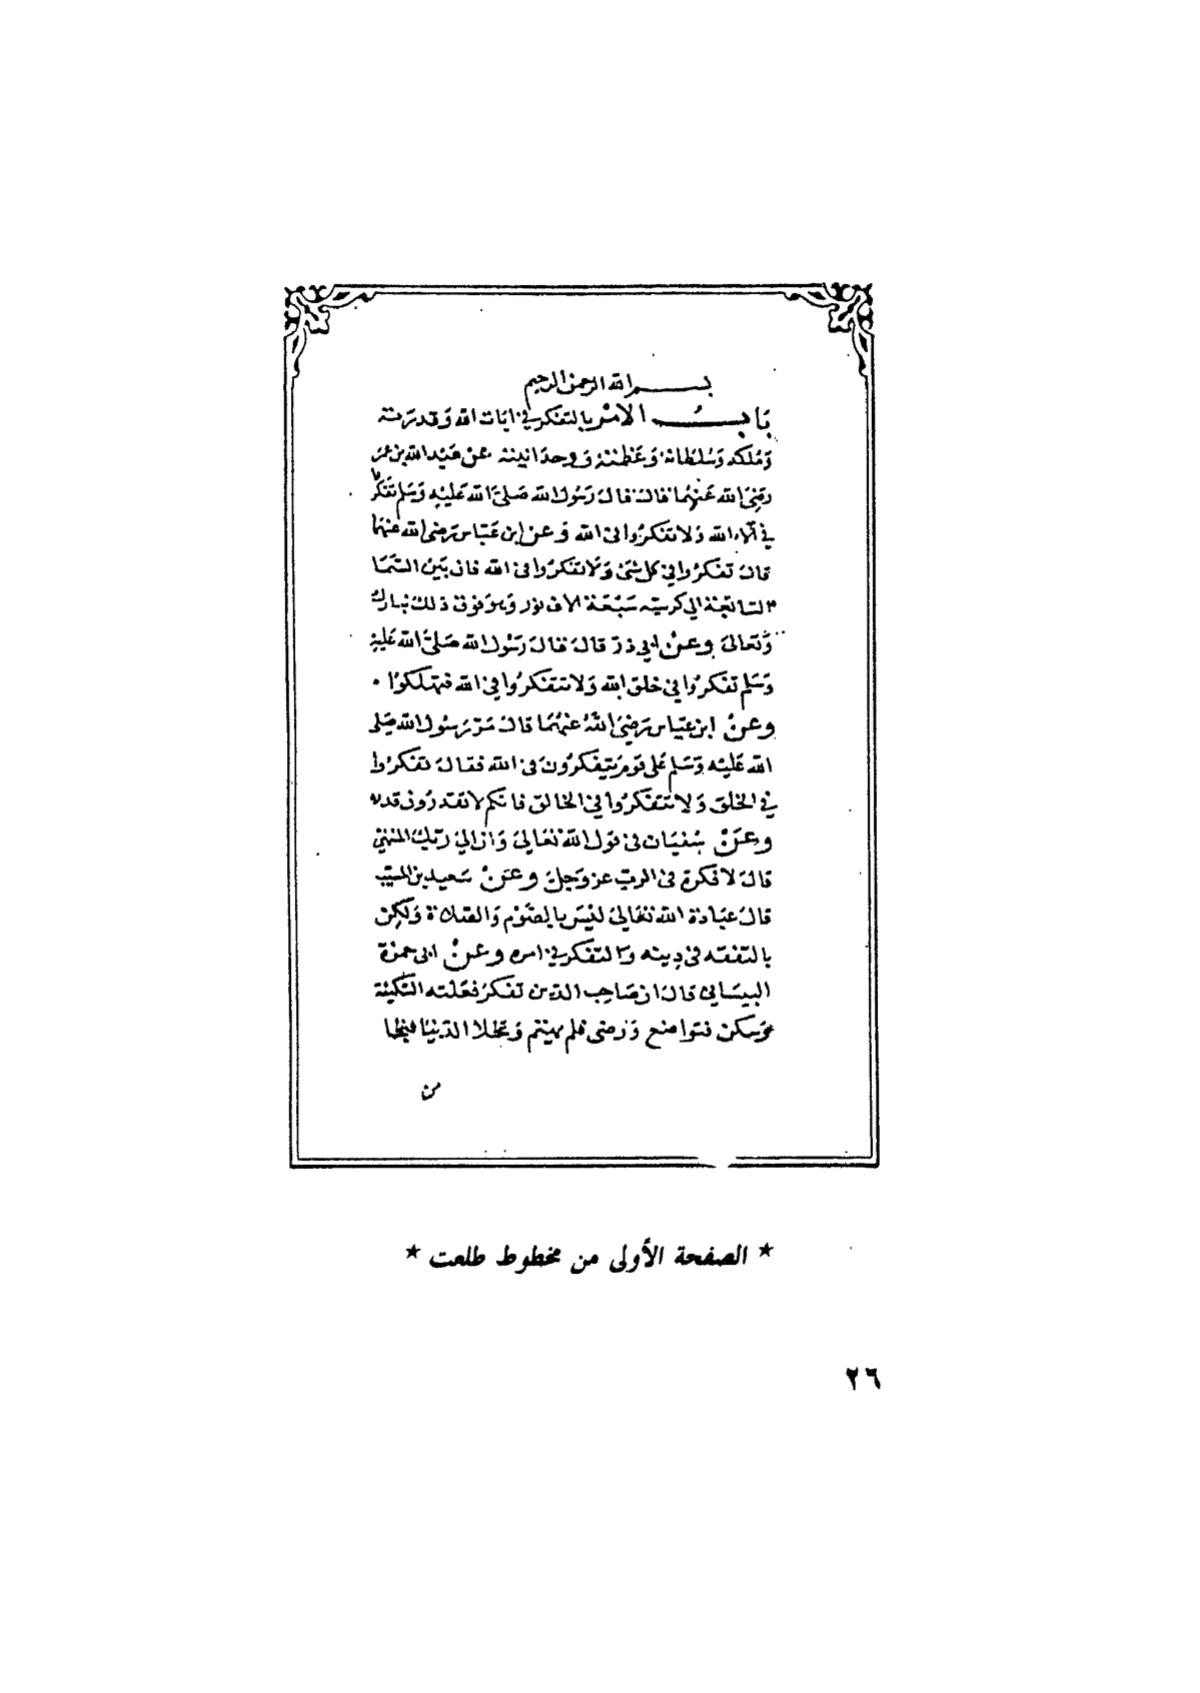 بسم الله الرحمن الرحيم
باب الامر بالتفكر في ايات الله وقدرته
وملكه وسلطانه وعظمته ووحدانيته عن عبد الله بن عمر
رضي الله عنهما قال قال رسول الله صلى الله عليه وسلم تفكروا
في آلاء الله ولا تفكروا في الله وعن ابن عباس رضي الله عنهما
قال تفكروا في كل شئ ولا تفكروا في الله فان بين السما
السابعة الي كرسيه سبعة الاف نور وهو فوق ذلك تبارك
وتعالى وعن ابي ذر قال قال رسول الله صلى الله عليه
وسلم تفكروا في خلق الله ولا تتفكروا في الله فتهلكوا .
وعن ابن عباس رضي الله عنهما قال مر رسول الله صلى
الله عليه وسلم على قوم يتفكرون في الله فقال تفكروا
في الخلق ولا تتفكروا في الخالق فانكم لا تقدرون قدره
وعن سفيان في قول الله تعالى وان الي ربك المنتهى
قال لا فكرة في الرب عز وجل وعن سعيد بن المسيب
قال عبادة الله تعالى ليس بالصوم والصلاة ولكن
بالتفقه في دينه والتفكر في امره وعن ابي حمزة
قال ان صاحب الدين تفكر فعلته السكينة
وسكن فتواضع ورضي فلم يهتم وتخلا الدنيا فنجا
من
* الصفحة الأولى من مخطوط طلعت *
٢٦